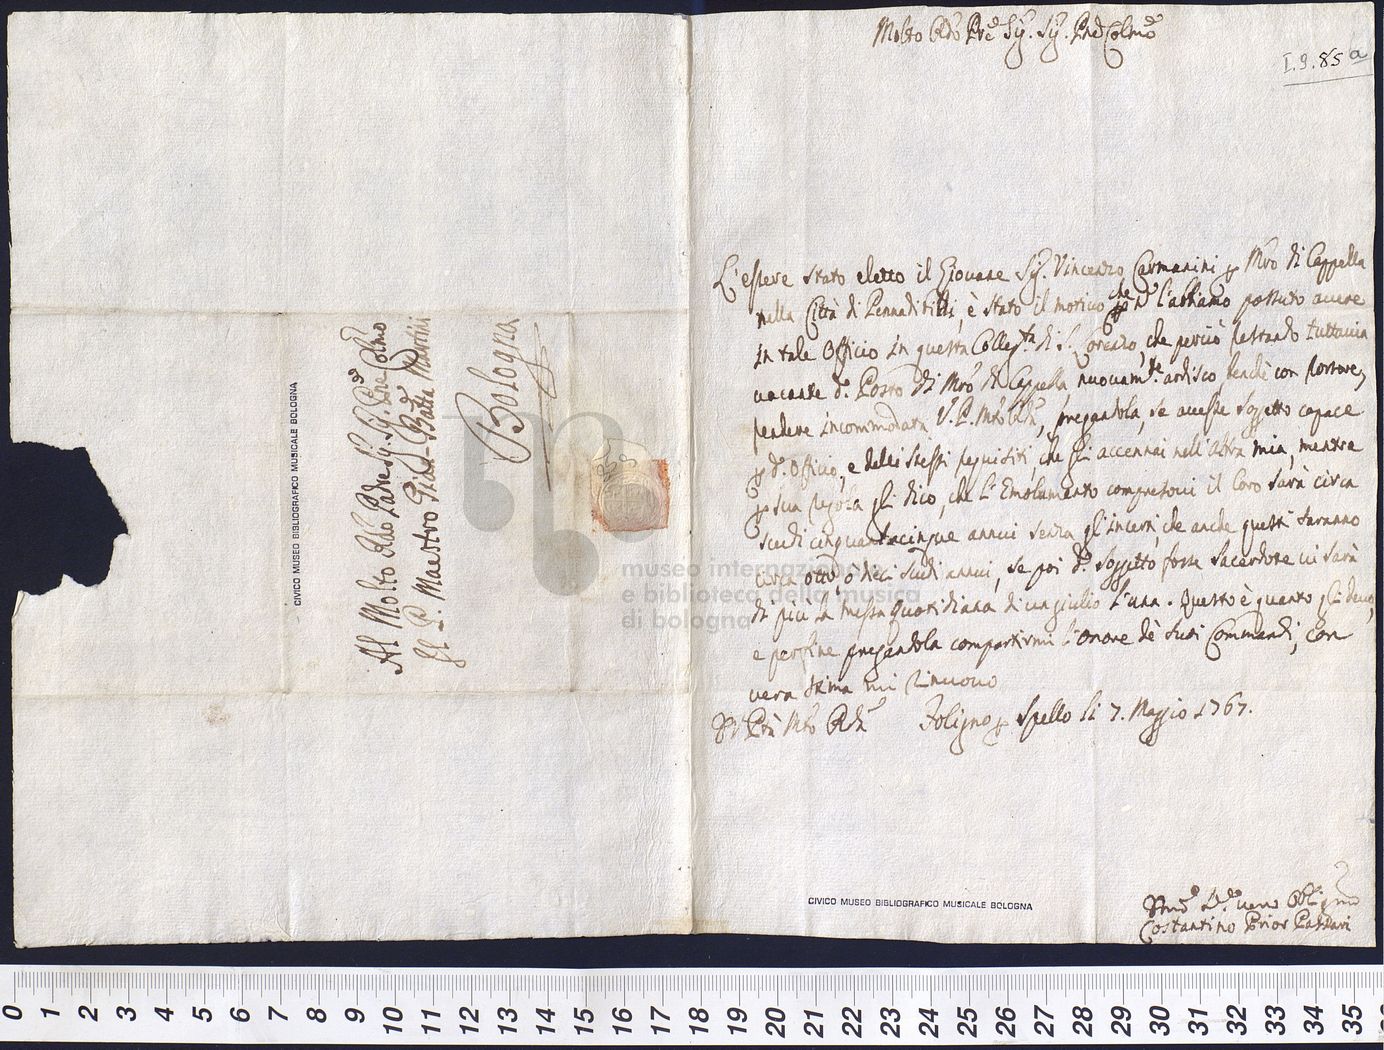 Molto Rdo Pre Sig. Sig. Pne Colmo
I.9.85 a
L'essere stato eletto il Giovane Sig. Vincenzo Carmanini p Mro di Cappella
nella Città di Pennadibilli, è stato il motivo che n l'abbiamo possuto avere
in tale Officio in questa Collegta di S. Lorenzo, che perciò restando tuttavia
vacante do Posto di Mro di Cappella nuovamte ardisco, benchè con rossore,
rendere incommodata V. P. Mto Rda, pregandola, se avesse soggetto capace
p do Officio, e delli stessi requisiti, che gli accennai nell'altra mia, mentre
p sua regola gli dico, che l'Emolumento compresovi il Coro sarà circa
scudi cinquantacinque annui senza gl'incerti, che anche questi saranno
circa otto, o dieci scudi annui, se poi do soggetto fosse Sacerdote vi sarà
di più la messa quotidiana di un giulio l'una. Questo è quanto gli devo,
e per fine pregandola compartirmi l'onore dè suoi Commandi, con
vera stima mi rinuovo
Di V. Ptà Mto Rda
Foligno p Spello li 7. Maggio 1767.
Devo Servo Obligmo
Costantino Prior Passari
Al Molto Rdo Padre Sig. Pre Colmo
Il P. Maestro Gian-Batta Martini
Bologna
CIVICO MUSEO BIBLIOGRAFICO MUSICALE BOLOGNA
CIVICO MUSEO BIBLIOGRAFICO MUSICALE BOLOGNA
museo internazionale
e biblioteca della musica
di bologna
0 1 2 3 4 5 6 7 8 9 10 11 12 13 14 15 16 17 18 19 20 21 22 23 24 25 26 27 28 29 30 31 32 33 34 35